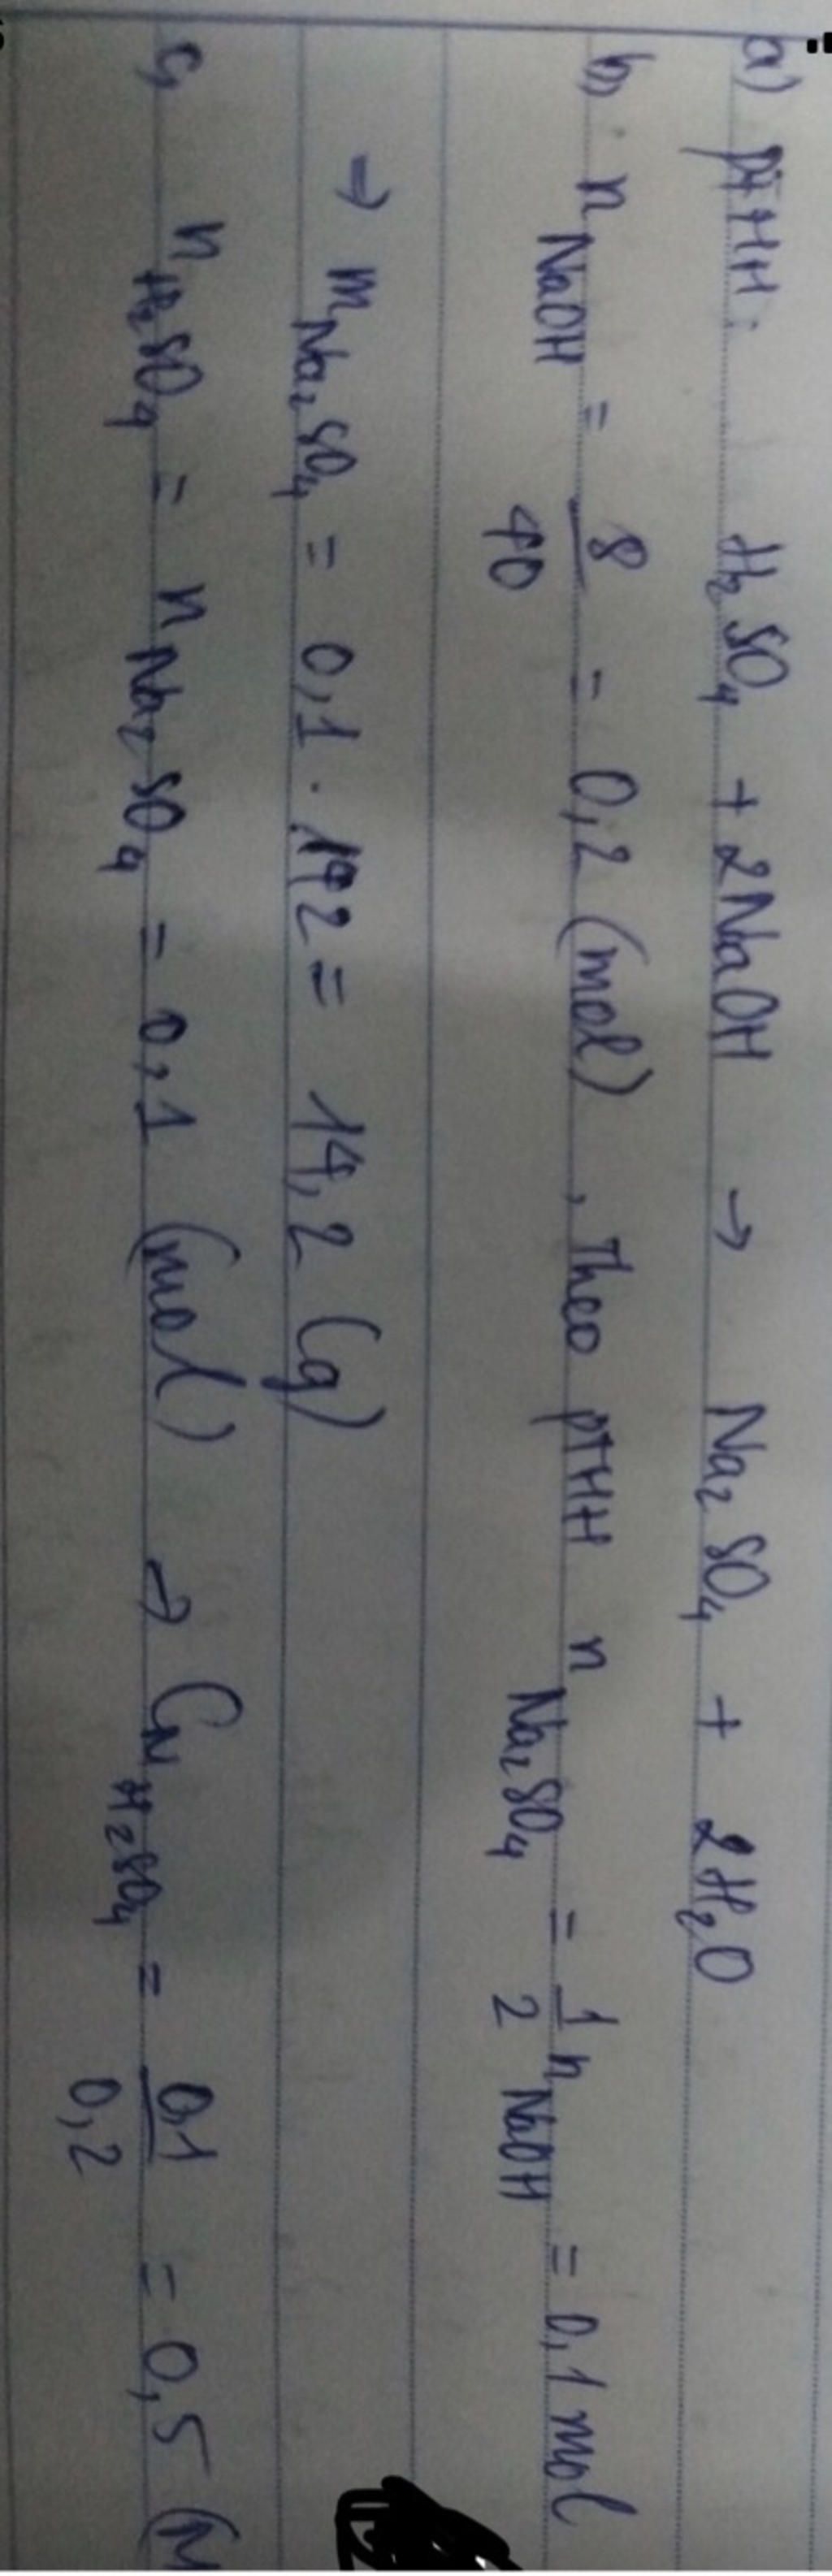 a) PTHH: H₂SO₄ + 2NaOH → Na₂SO₄ + 2H₂O
b, n NaOH = 8/40 = 0,2 (mol), Theo PTHH n Na₂SO₄ = 1/2 n NaOH = 0,1 mol
→ m Na₂SO₄ = 0,1 . 142 = 14,2 (g)
c, n H₂SO₄ = n Na₂SO₄ = 0,1 (mol) → CM H₂SO₄ = 0,1/0,2 = 0,5 (M